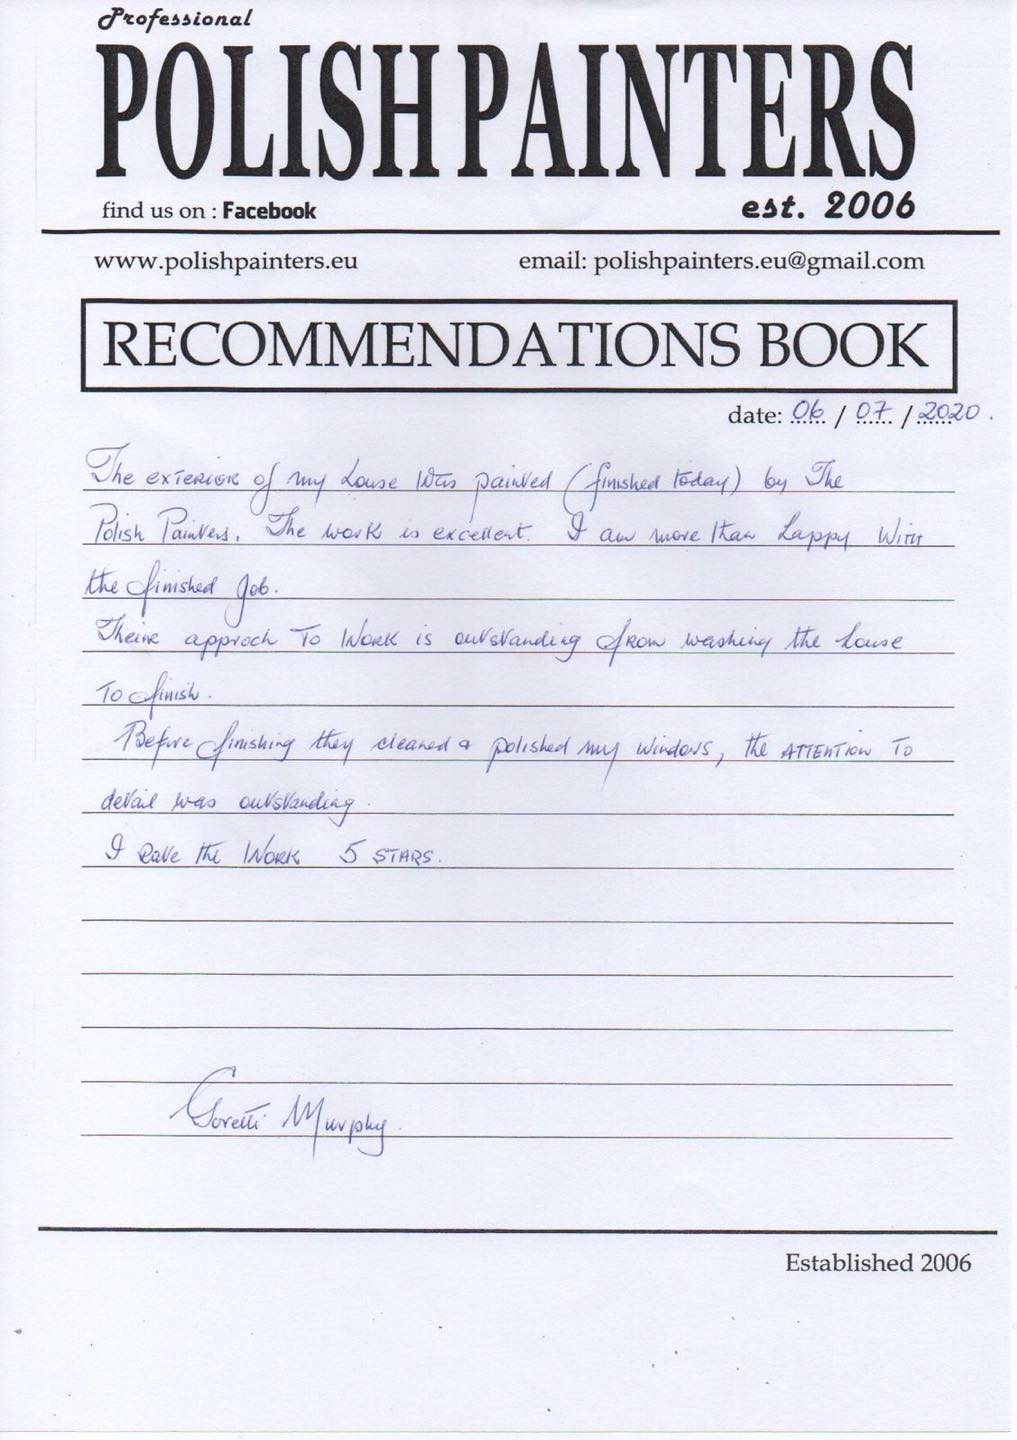 Professional
POLISH PAINTERS
find us on : Facebook
est. 2006
www.polishpainters.eu
email: polishpainters.eu@gmail.com
RECOMMENDATIONS BOOK
date: 06 / 07 / 2020.
The exterior of my house was painted (finished today) by The
Polish Painters. The work is excellent. I am more than happy with
the finished job.
Their approch to work is outstanding from washing the house
to finish.
Before finishing they cleaned & polished my windows, the ATTENTION TO
detail was outstanding.
I rate the work 5 STARS.
Goretti Murphy.
Established 2006